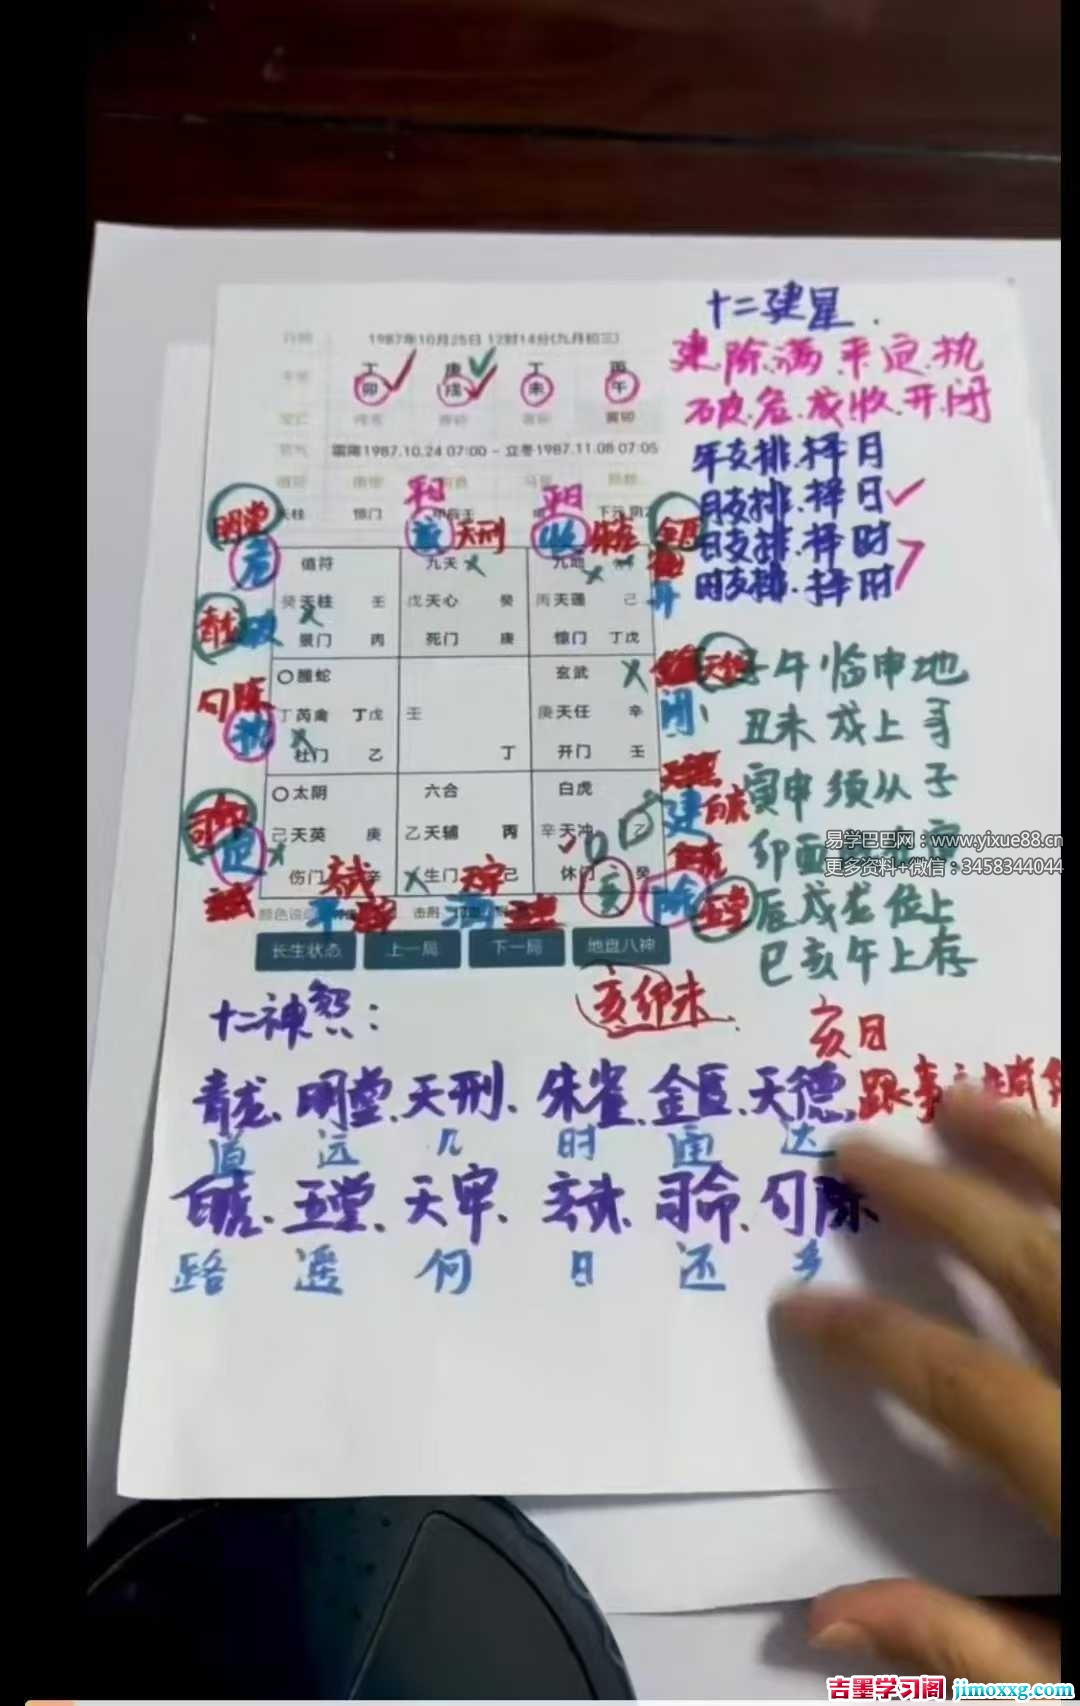 十二建星.
建.除.满.平.定.执
破.危.成.收.开.闭
年支排.择月
月支排.择日
日支排.择时
时支排.择时
1987年10月25日 12时14分(九月初三)
丁 庚 丁 丙
卯 戌 未 午
霜降1987.10.24 07:00 - 立冬1987.11.08 07:05
天柱 惊门
明堂
危
天刑
收
朱雀
开
青龙
破
勾陈
执
定
闭
建
白虎
除
值符
癸 天柱 壬
景门 丙
九天
戊 天心 癸
死门 庚
九地
丙 天蓬 己
惊门 丁 戊
螣蛇
丁 芮禽 丁 戊
杜门 乙
壬
丁
玄武
庚 天任 辛
开门 壬
太阴
己 天英 庚
伤门 辛
六合
乙 天辅 丙
生门 己
白虎
辛 天冲 乙
休门 癸
亥
长生状态 上一局 下一局 地盘八神
子午临申地
丑未戌上寻
寅申须从子
卯酉
辰戌龙位上
巳亥午上存
易学巴巴网：www.yixue88.cn
更多资料+微信：3458344044
十二神煞：
亥卯未
亥日
青龙、明堂、天刑、朱雀、金匮、天德、
道 远 几 时 通 达
白虎、玉堂、天牢、玄武、司命、勾陈、
路 遥 何 日 还 乡
吉墨学习阁 jimoxxg.com